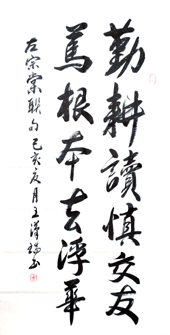 勤耕讀慎交友
篤根本去浮華
左宗棠聯句己亥夏月王漢